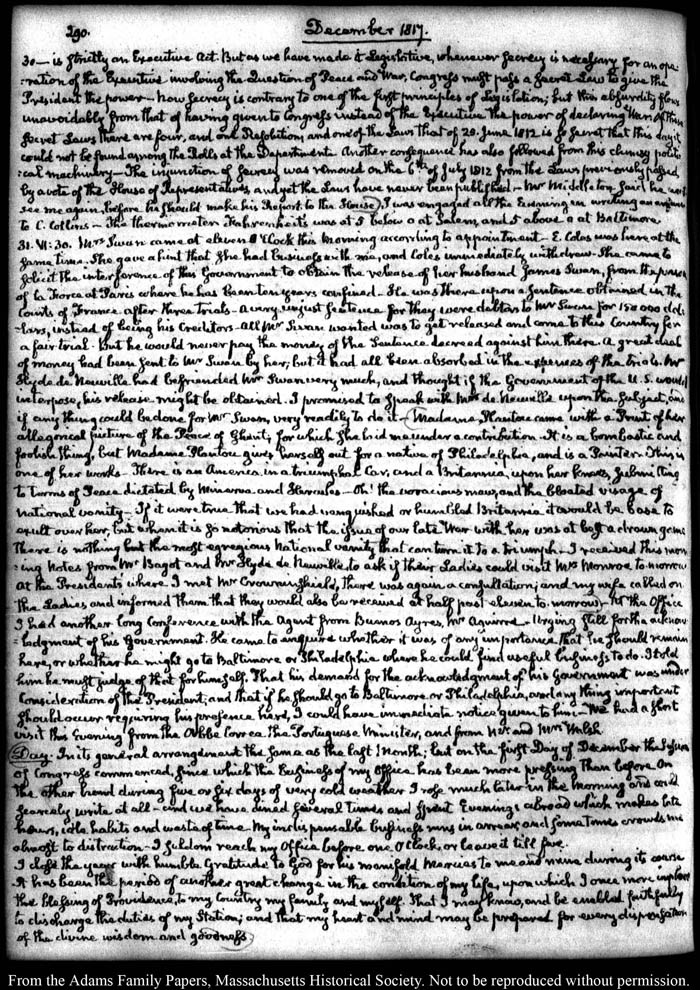 290.
December 1817.
30— is strictly an Executive Act. But as we have made it Legislative, whenever secrecy is necessary for an ope-
-ration of the Executive involving the Question of Peace and War, Congress must pass a secret Law to give the
President the power— Now secrecy is contrary to one of the first principles of Legislation; but this absurdity flows
unavoidably from that of having given to Congress instead of the Executive the power of declaring War. Of these
secret Laws there are four, and one Resolution; and one of the Laws that of 25. June 1812 is so secret that this day it
could not be found among the Rolls at the Department. Another consequence has also followed from this clumsy politi
:cal machinery— The injunction of secrecy was removed on the 6th of July 1812 from the Laws previously passed,
by a vote of the House of Representatives, and yet the Laws have never been published— Mr Middleton said he would
see me again, before he should make his Report to the House. I was engaged all the Evening in writing an answer
to C. Collins— The thermometer Fahrenheit's was at 5 below 0 at Salem, and 5 above 0 at Baltimore
31. VI: 30. Mrs Swan came at eleven O'Clock this Morning according to appointment— E. Coles was here at the
same time. She gave a hint that she had business with me, and Coles immediately withdrew. She came to
solicit the interference of this Government to obtain the release of her husband James Swan, from the prison
of la Force at Paris where he has been ten years confined. He was there upon a sentence obtained in the
Courts of France after three trials— a very unjust sentence for they were debtors to Mr Swan for 150000 dol-
-lars, instead of being his Creditors— All Mr Swan wanted was to get released and come to this Country for
a fair trial. But he would never pay the money of the Sentence decreed against him there. A great deal
of money had been sent to Mr Swan by her; but it had all been absorbed in the expences of the trials. Mr
Hyde de Neuville had befriended Mr Swan very much, and thought if the Government of the U.S. would
interpose, his release might be obtained. I promised to speak with Mr de Neuville upon the subject, and
if any thing could be done for Mr Swan, very readily to do it— Madame Plantou came with a Print of her
allegorical picture of the Peace of Ghent; for which she laid me under a contribution. It is a bombastic and
foolish thing, but Madame Plantou gives herself out for a native of Philadelphia, and is a Painter. This is
one of her works— There is an America, in a triumphal Car, and a Britannia, upon her knees, submitting
to terms of Peace dictated by Minerva and Hercules— Oh! the voracious maw, and the bloated visage of
national vanity— If it were true that we had vanquished or humbled Britannia it would be base to
exult over her, but when it is so notorious that the issue of our late War with her was at best a drawn game
there is nothing but the most egregious National vanity that can turn it to a triumph— I received this morn
:ing Notes from Mr Bagot and Mr Hyde de Neuville to ask if their Ladies could visit Mrs Monroe to-morrow
at the Presidents where I met Mr Crowninshield, there was again a consultation; and my wife called on
the Ladies and informed them that they would also be received at half past eleven to-morrow— At the Office
I had another long Conference with the Agent from Buenos Ayres, Mr Aguirre— Urging still for the acknow-
-ledgment of his Government. He came to enquire whether it was of any importance that he should remain
here, or whether he might go to Baltimore or Philadelphia where he could find useful business to do. I told
him he must judge of that for himself. That his demand for the acknowledgment of his Government was under
Consideration of the President; and that if he should go to Baltimore or Philadelphia, and any thing important
should occur requiring his presence here, I could have immediate notice given to him— We had a short
visit this Evening from the Abbe Correa the Portuguese Minister, and from Mr and Mrs Walsh.
Day. In its general arrangement the same as the last Month; but on the first Day of December the Session
of Congress commenced, since which the Business of my office has been more pressing than before. On
the other hand during five or six days of very cold weather I rose much later in the morning and could
scarcely write at all— and we have dined several times and spent Evenings abroad which makes late
hours, idle habits and waste of time. My indispensable business runs in arrear, and sometimes crowds me
almost to distraction— I seldom reach my Office before one O'Clock, or leave it till five.
I close the year with humble Gratitude to God for his manifold Mercies to me and mine during its course
It has been the period of another great change in the condition of my life, upon which I once more implore
the blessing of Providence, to my Country my family and myself. That I may know, and be enabled faithfully
to discharge the duties of my Station; and that my heart and mind may be prepared for every dispensation
of the divine wisdom and goodness.
From the Adams Family Papers, Massachusetts Historical Society. Not to be reproduced without permission.